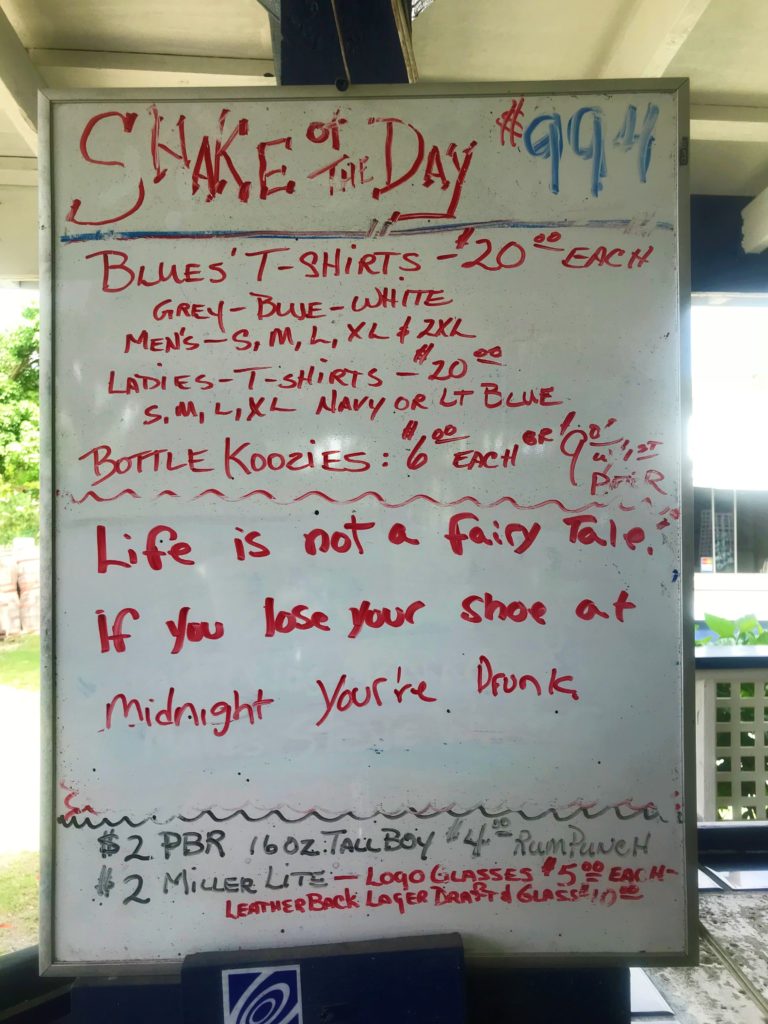 SHAKE OF THE DAY #994
BLUES' T-SHIRTS - $20.00 EACH
GREY - BLUE - WHITE
MEN'S - S, M, L, XL & 2XL
LADIES - T-SHIRTS - $20.00
S, M, L, XL NAVY OR LT BLUE
BOTTLE KOOZIES: $6.00 EACH OR $9.00 W/1ST
BEER
Life is not a fairy Tale.
If you lose your shoe at
midnight you're Drunk.
$2 PBR 16 OZ. TALL BOY $4.00 RUM PUNCH
$2 MILLER LITE - LOGO GLASSES $5.00 EACH -
LEATHERBACK LAGER DRAFT & GLASS $10.00